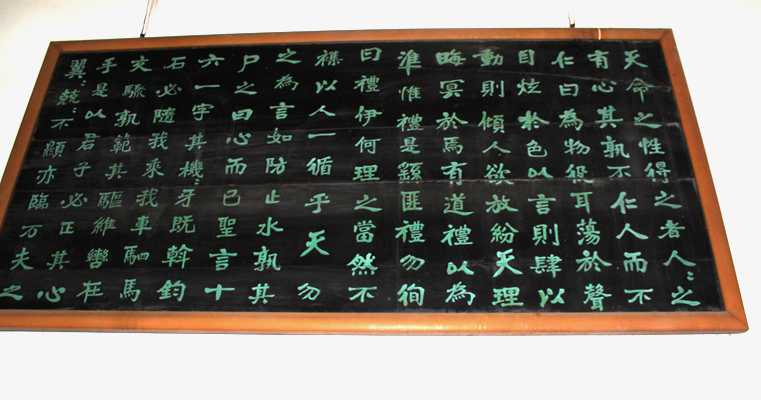 天命之性得之者人々之
有心其孰不仁人而不
仁曰為物役耳蕩於聲
目炫於色以言則肆以
動則傾人欲放紛天理
晦冥於焉有道禮以為
准惟禮是繇匪禮勿徇
曰禮伊何理之當然不
襍以人一循乎天勿
之為言如防止水孰其
尸之曰心而已聖言十
六一字其機々牙既斡鈞
石必隨我乘我車駟馬
交驟孰範其驅維轡在
手是以君子必正其心
翼々兢々不顯亦臨万夫之